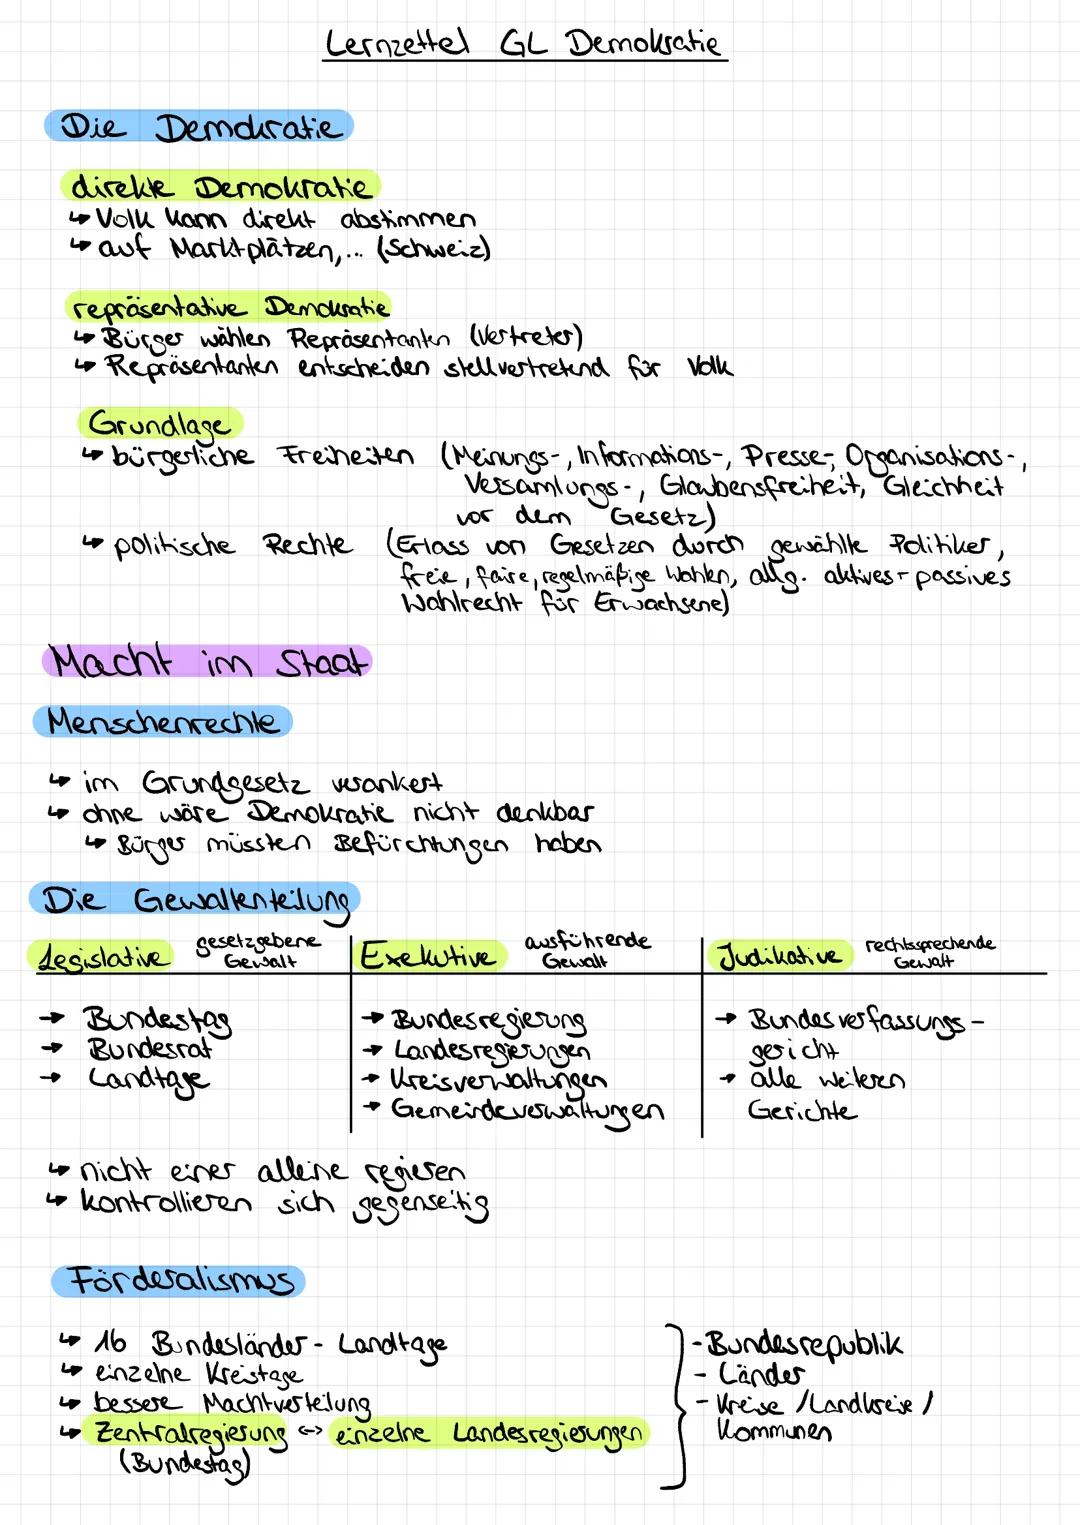 Lernzettel GL Demokratie
Die Demokratie
direkte Demokratie
↳ Volk kann direkt abstimmen
↳ auf Marktplätzen,... (Schweiz)
repräsentative Demokratie
↳ Bürger wählen Repräsentanten (Vertreter)
↳ Repräsentanten entscheiden stellvertretend für Volk
Grundlage
↳ bürgerliche Freiheiten (Meinungs-, Informations-, Presse-, Organisations-,
Versamlungs-, Glaubensfreiheit, Gleichheit
vor dem Gesetz)
↳ politische Rechte (Erlass von Gesetzen durch gewählte Politiker,
freie, faire, regelmäßige Wahlen, allg. aktives + passives
Wahlrecht für Erwachsene)
Macht im Staat
Menschenrechte
↳ im Grundgesetz verankert
↳ ohne wäre Demokratie nicht denkbar
↳ Bürger müssten Befürchtungen haben
Die Gewaltenteilung
Legislative gesetzgebene Gewalt
Exekutive ausführende Gewalt
Judikative rechtssprechende Gewalt
→ Bundestag
→ Bundesrat
→ Landtage
→ Bundesregierung
→ Landesregierungen
→ Kreisverwaltungen
→ Gemeindeverwaltungen
→ Bundesverfassungs-
gericht
→ alle weiteren
Gerichte
↳ nicht einer alleine regieren
↳ kontrollieren sich gegenseitig
Förderalismus
↳ 16 Bundesländer - Landtage
↳ einzelne Kreistage
↳ bessere Machtverteilung
↳ Zentralregierung ↔ einzelne Landesregierungen
(Bundestag)
- Bundesrepublik
- Länder
- Kreise / Landkreise /
Kommunen